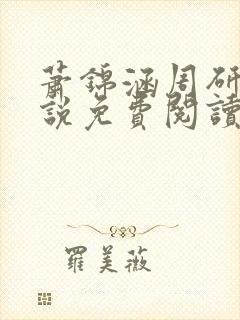 蕭錦涵周研
說免費閱讀
羅美薇